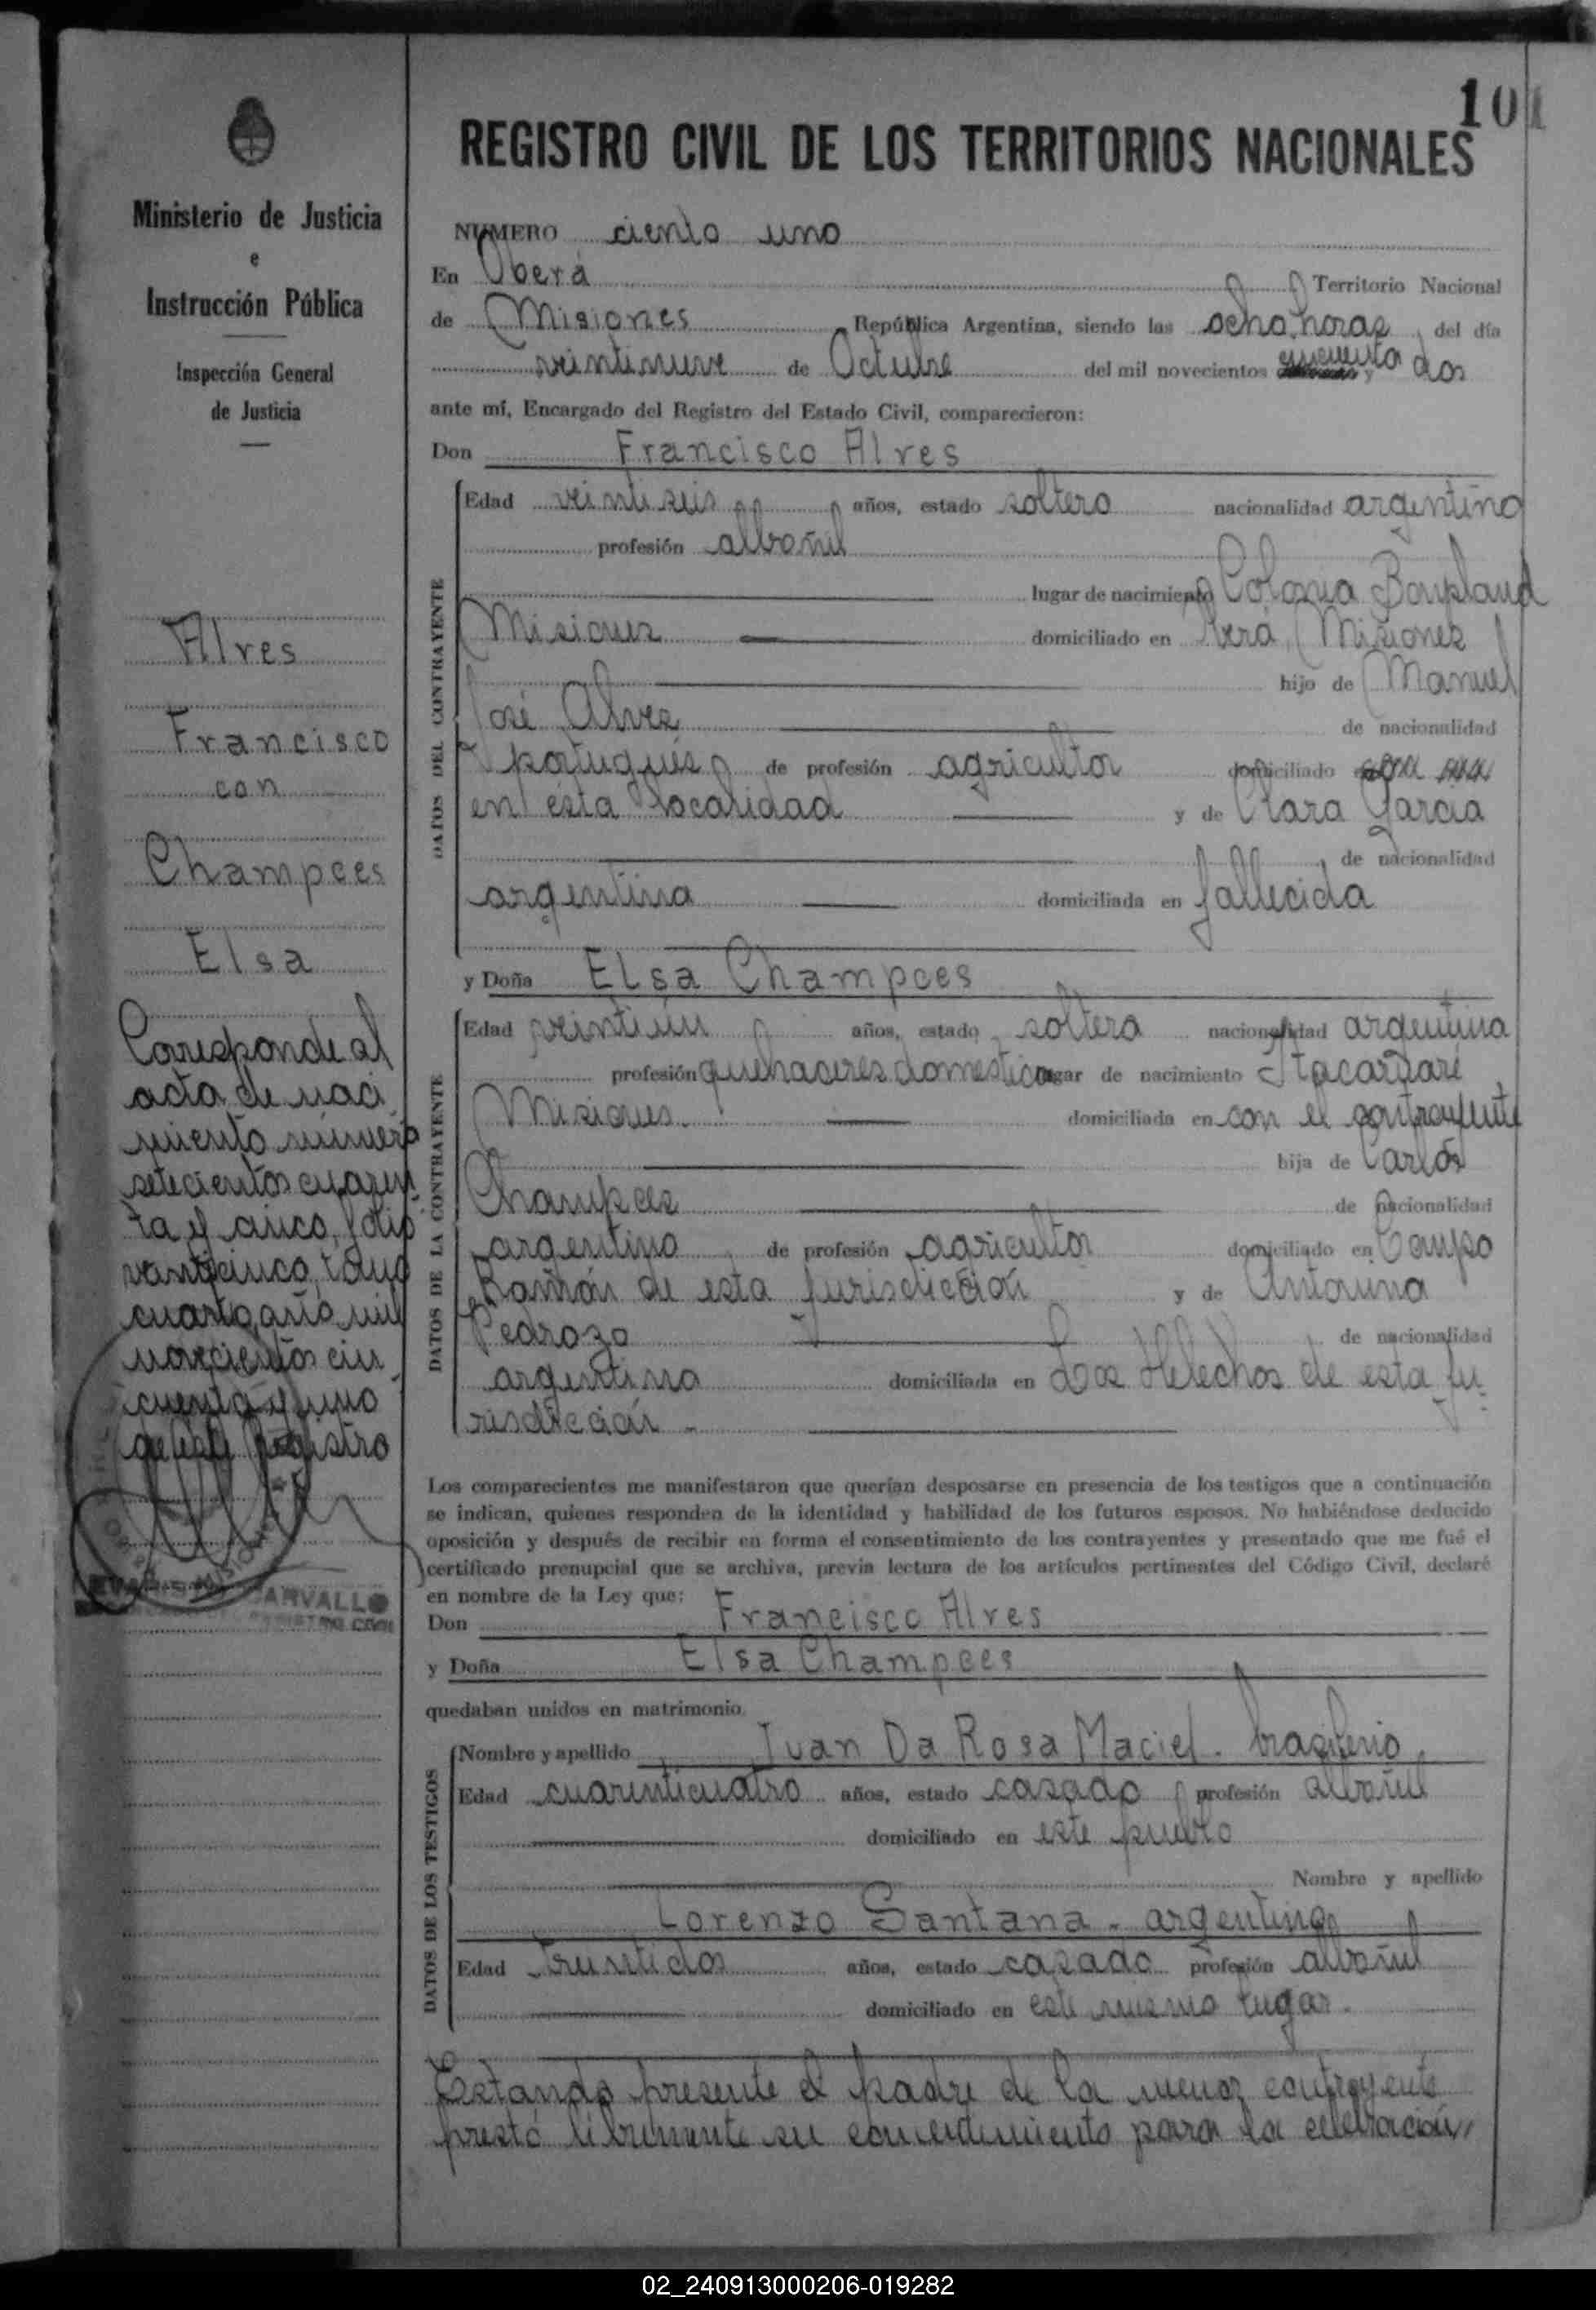 101
REGISTRO CIVIL DE LOS TERRITORIOS NACIONALES
Ministerio de Justicia
e
Instrucción Pública
Inspección General
de Justicia
Alves
Francisco
con
Champees
Elsa
Corresponde al
acta de naci
miento número
setecientos cuaren
ta y cinco, folio
veinticinco, tomo
cuarto, año mil
novecientos cin
cuenta y uno
de este Registro
CARVALLO
NUMERO ciento uno
En Oberá Territorio Nacional
de Misiones República Argentina, siendo las ocho horas, del día
veintinueve de Octubre del mil novecientos cincuenta y dos
ante mí, Encargado del Registro del Estado Civil, comparecieron:
Don Francisco Alves
DATOS DEL CONTRAYENTE
Edad veintiseis años, estado soltero nacionalidad argentino
profesión albañil
lugar de nacimiento Colonia Bonpland
Misiones domiciliado en Oberá, Misiones
hijo de Manuel
José Alves de nacionalidad
portugués de profesión agricultor domiciliado
en ésta localidad y de Clara García
, de nacionalidad
argentina domiciliada en fallecida
y Doña Elsa Champees
DATOS DE LA CONTRAYENTE
Edad veintiún años, estado soltera nacionalidad argentina
profesión quehaceres domesticos lugar de nacimiento Itacaruaré
Misiones domiciliada en con el contrayente
hija de Carlos
Champees de nacionalidad
argentino de profesión agricultor domiciliado en Campo
Ramón de esta jurisdicción y de Antonina
Pedrozo de nacionalidad
argentina domiciliada en Los Helechos de esta ju
risdicción -
Los comparecientes me manifestaron que querían desposarse en presencia de los testigos que a continuación
se indican, quienes responden de la identidad y habilidad de los futuros esposos. No habiéndose deducido
oposición y después de recibir en forma el consentimiento de los contrayentes y presentado que me fué el
certificado prenupcial que se archiva, previa lectura de los artículos pertinentes del Código Civil, declaré
en nombre de la Ley que:
Don Francisco Alves
y Doña Elsa Champees
quedaban unidos en matrimonio.
DATOS DE LOS TESTIGOS
Nombre y apellido Juan Da Rosa Maciel - brasileño
Edad cuarenticuatro años, estado casado profesión albañil
domiciliado en este pueblo
Nombre y apellido
Lorenzo Santana - argentino
Edad treintidos años, estado casado profesión albañil
domiciliado en este mismo lugar.
Estando presente el padre de la menor contrayente
prestó libremente su consentimiento para la celebración
02_240913000206-019282